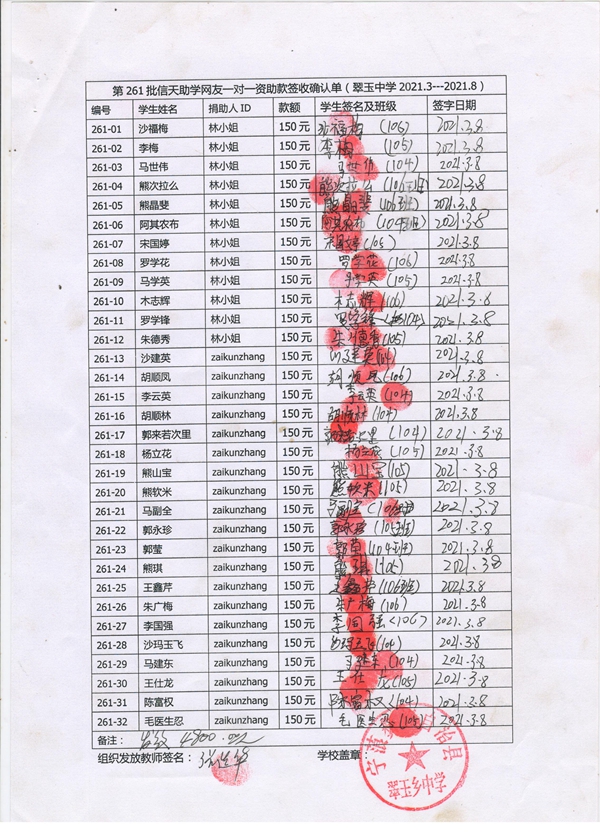 第261批信天助学网友一对一资助款签收确认单（翠玉中学2021.3---2021.8）
编号 学生姓名 捐助人ID 款额 学生签名及班级 签字日期
261-01 沙福梅 林小姐 150元 沙福梅 (106) 2021.3.8
261-02 李梅 林小姐 150元 李梅 (105) 2021.3.8
261-03 马世伟 林小姐 150元 马世伟 (104) 2021.3.8
261-04 熊次拉么 林小姐 150元 熊次拉么 (106班) 2021.3.8
261-05 熊晶斐 林小姐 150元 熊晶斐 106班 2021.3.8
261-06 阿其农布 林小姐 150元 阿其农布 (104班) 2021.3.8
261-07 宋国婷 林小姐 150元 宋国婷 (105) 2021.3.8
261-08 罗学花 林小姐 150元 罗学花 (106) 2021.3.8
261-09 马学英 林小姐 150元 马学英 (105) 2021.3.8
261-10 木志辉 林小姐 150元 木志辉 (106) 2021.3.8
261-11 罗学锋 林小姐 150元 罗学锋 2021.3.8
261-12 朱德秀 林小姐 150元 朱德秀 (105) 2021.3.8
261-13 沙建英 zaikunzhang 150元 沙建英 (104) 2021.3.8
261-14 胡顺凤 zaikunzhang 150元 胡顺凤 (106) 2021.3.8
261-15 李云英 zaikunzhang 150元 李云英 (104) 2021.3.8
261-16 胡顺林 zaikunzhang 150元 胡顺林 (104) 2021.3.8
261-17 郭来若次里 zaikunzhang 150元 (104) 2021.3.8
261-18 杨立花 zaikunzhang 150元 杨立花 (105) 2021.3.8
261-19 熊山宝 zaikunzhang 150元 熊山宝 (105) 2021.3.8
261-20 熊软米 zaikunzhang 150元 熊软米 (105) 2021.3.8
261-21 马副全 zaikunzhang 150元 马副全 2021.3.8
261-22 郭永珍 zaikunzhang 150元 郭永珍 (105班) 2021.3.8
261-23 郭莹 zaikunzhang 150元 郭莹 (104班) 2021.3.8
261-24 熊琪 zaikunzhang 150元 熊琪 (105) 2021.3.8
261-25 王鑫芹 zaikunzhang 150元 王鑫芹 (106班) 2021.3.8
261-26 朱广梅 zaikunzhang 150元 朱广梅 (106) 2021.3.8
261-27 李国强 zaikunzhang 150元 李国强 <106> 2021.3.8
261-28 沙玛玉飞 zaikunzhang 150元 沙玛玉飞 (104) 2021.3.8
261-29 马建东 zaikunzhang 150元 马建东 (104) 2021.3.8
261-30 王仕龙 zaikunzhang 150元 王仕龙 (105) 2021.3.8
261-31 陈富权 zaikunzhang 150元 陈富权 (104) 2021.3.8
261-32 毛医生忍 zaikunzhang 150元 毛医生忍 (105) 2021.3.8
备注： 4800.00元
组织发放教师签名： 学校盖章：